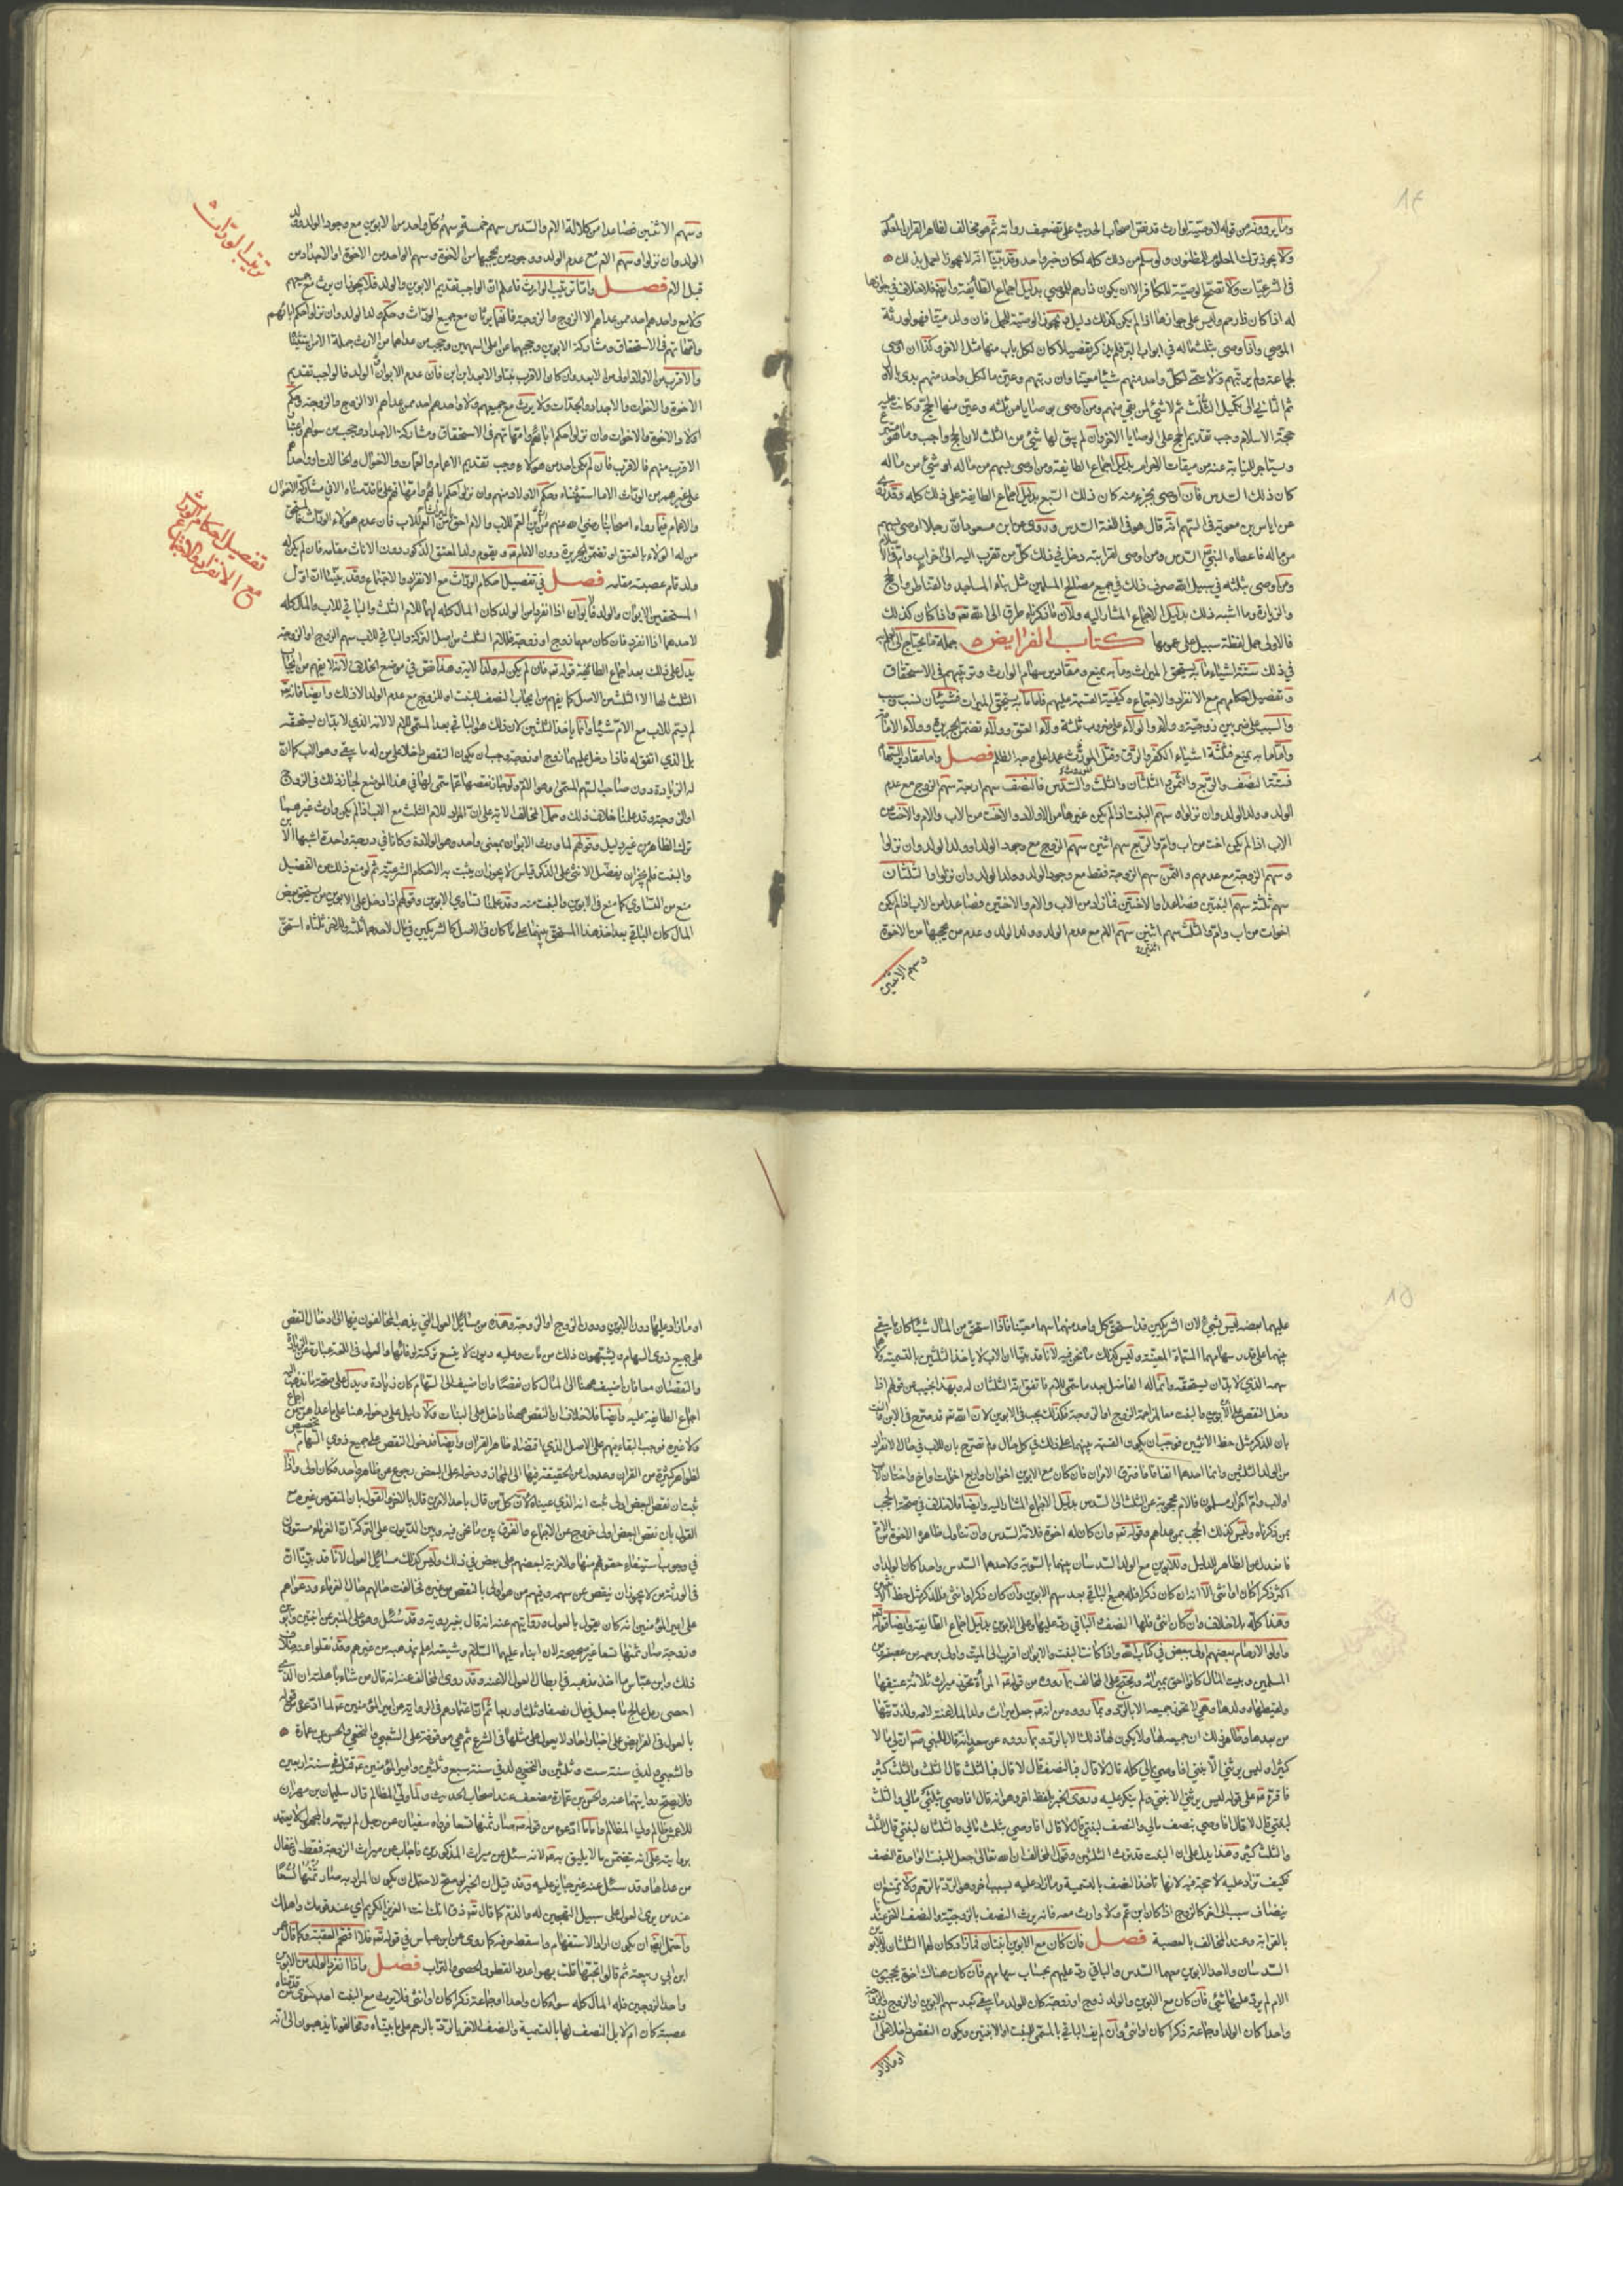 وما يروونه من قوله لا وصية لوارث قد نص اصحاب الحديث على تضعيف رواته ثم هو مخالف لظاهر القران المعلوم
ولا يجوز ترك المعلوم للمظنون ولو سلم من ذلك كله لكان خبر واحد وقد بينا انه لا يجوز العمل بذلك
في الشرعيات ولا تصح الوصية للكافر الا ان يكون ذا رحم للموصي بدليل اجماع الطائفة وايضا فلا خلاف في جوازها
له اذا كان ذا رحم وليس على جوازها اذا لم يكن كذلك دليل وتجوز الوصية للحمل فان ولد ميتا فهو لورثة
الموصي واذا اوصى بثلث ماله في ابواب البر فلم يذكر تفصيلا كان لكل باب منها مثل الاخر وكذا ان اوصى
لجماعة ولم يرتبهم ولا سمى لكل واحد منهم شيئا معينا وان رتبهم وعين ما لكل واحد منهم بدئ بالاول
ثم الثاني الى تكميل الثلث ثم لا شيء لمن بقي منهم ومن اوصى بوصايا من ثلثه وعين منها الحج وكانت عليه
حجة الاسلام وجب تقديم الحج على الوصايا الاخر وان لم يبق لها شيء من الثلث لان الحج واجب وما هو متبرع
ويستاجر للنيابة عنه من ميقات الاحرام بدليل اجماع الطائفة ومن اوصى بسهم من ماله او شيء من ماله
كان ذلك السدس فان اوصى بجزء منه كان ذلك السبع بدليل اجماع الطايفة على ذلك كله وقد روي
عن اياس بن معوية في السهم انه قال هو في اللغة السدس وروى عن ابن مسعود ان رجلا اوصى بسهم
من ماله فاعطاه النبي السدس ومن اوصى لقرابته دخل في ذلك كل من تقرب اليه الى اخر اب وام في الاسلام
ومن اوصى بثلثه في سبيل الله صرف ذلك في جميع مصالح المسلمين مثل بناء المساجد والقناطر والحج
والزيارة وما اشبه ذلك بدليل الاجماع المشار اليه ولان ما ذكرناه طرق الى الله تعه واذا كان كذلك
فالاولى حمل لفظة سبيل على عمومها كتاب الفرايض جملة ما يحتاج الى العلم به
في ذلك ستة اشياء ما به يستحق الميراث وما به يمنع ومقادير سهام الوارث وترتيبهم في الاستحقاق
وتفصيل احكامهم مع الانفراد والاجتماع وكيفية القسمة عليهم فاما ما به يستحق الميراث فشيئان نسب وسبب
والسبب على ضربين زوجية وولاء والولاء على ضروب ثلثة ولاء العتق وولاء تضمن الجريرة وولاء الامامة
واما ما به يمنع فثلثة اشياء الكفر والرق وقتل الموروث عمدا على وجه الظلم فصل واما مقادير السهام
فستة النصف والربع والثمن والثلثان والثلث والسدس فالنصف سهم اربعة سهم الزوج مع عدم
الولد وولد الولد وان نزلوا وسهم البنت اذا لم يكن غيرها من الاولاد والاخت من الاب والام والاخت من
الاب اذا لم يكن اخت من اب وام والربع سهم اثنين سهم الزوج مع وجود الولد او ولد الولد وان نزلوا
وسهم الزوجة مع عدمهم والثمن سهم الزوجة فقط مع وجود الولد وولد الولد وان نزلوا والثلثان
سهم ثلثة سهم البنتين فصاعدا والاختين فما زاد من الاب والام والاختين فصاعدا من الاب اذا لم يكن
اخوات من اب وام والثلث سهم اثنين سهم الام مع عدم الولد وولد الولد وعدم من يحجبها من الاخوة
وسهم الاثنين
ترتيب الوراث
وسهم الاثنين فصاعدا من كلالة الام والسدس سهم خمسة سهم كل واحد من الابوين مع وجود الولد وولد
الولد وان نزلوا وسهم الام مع عدم الولد ووجود من يحجبها من الاخوة وسهم الواحد من الاخوة او الاخوات من
قبل الام فصل واما ترتيب الوارث فاعلم ان الواجب تقديم الابوين والولد فلا يجوز ان يرث مع جميعهم
ولا مع واحدهم احد ممن عداهم الا الزوج والزوجة فانهما يرثان مع جميع الوراث وحكم ولد الولد وان نزلوا حكم ابائهم
وامهاتهم في الاستحقاق ومشاركة الابوين وحجبهما من اعلى السهمين وحجب من عداهما من الارث جملة الا من استثنينا
والاقرب من الاولاد اولى من الابعد وان كان الاقرب بنتا والابعد ابن ابن فان عدم الابوان والولد فالواجب تقديم
الاخوة والاخوات والاجداد والجدات ولا يرث مع جميعهم ولا واحدهم احد ممن عداهم الا الزوج والزوجة وحكم
اولاد الاخوة والاخوات وان نزلوا حكم ابائهم وامهاتهم في الاستحقاق ومشاركة الاجداد وحجب من سواهم
الاقرب منهم فالاقرب فان لم يكن احد من هولاء وجب تقديم الاعمام والعمات والاخوال والخالات
على غيرهم من الوراث الا ما استثنيناه وحكم الاولاد منهم وان نزلوا حكم ابائهم وامهاتهم على ما قدمناه الا في مشاركة الاخوال
والاعمام فيما رواه اصحابنا رضي الله عنهم من ابن العم للاب والام احق من العم للاب فان عدم هولاء الوراث فالمستحق
من له الولاء بالعتق او تضمن الجريرة دون الامام ويقوم ولد المعتق الذكور دون الاناث مقامه فان لم يكن له
ولد قام عصبته مقامه فصل في تفصيل احكام الوراث مع الانفراد والاجتماع وقد بينا ان اول
تفصيل احكام الوراث
مع الانفراد والاجتماع
المستحقين الابوان والولد فالابوان اذا انفردا من الولد كان المال كله لهما للام الثلث والباقي للاب والمال كله
لاحدهما اذا انفرد فان كان معهما زوج او زوجة فللام الثلث من اصل التركة والباقي للاب سهم الزوج او الزوجة
يدل على ذلك بعد اجماع الطائفة قوله تعه فان لم يكن له ولد الاية وهذا نص في موضع الخلاف لانه لا يفهم من ايجاب
الثلث لها الا الثلث من الاصل كما يفهم من ايجاب النصف للبنت او للزوج مع عدم الولد الا ذلك وايضا فانه تعه
لم يسم للاب مع الام شيئا وانما ياخذ الثلثين لان ذلك هو الباقي بعد المسمى للام لا لانه الذي لا بد ان يستحقه
بل الذي اتفق له فاذا دخل عليهما زوج او زوجة وجب ان يكون النقص داخلا على من له ما يبقى وهو الاب كما ان
له الزيادة دون صاحب السهم المسمى وهو الام ولو جاز نقصها عما سمى لها في هذا الموضع لجاز ذلك في الزوج
او الزوجة وقد علمنا خلاف ذلك وحمل المخالف الاية على ان المراد للام الثلث مع الاب اذا لم يكن وارث غيرهما
ترك الظاهر من غير دليل وقولهم لما ورث الابوان بمعنى واحد وهو الولادة وكانا في درجة واحدة اشبها الابن
والبنت فلم يجز ان يفضل الانثى على الذكر قياس لا يجوز ان يثبت به الاحكام الشرعية ثم لو منع ذلك من التفضيل
منع من التساوي كما منع في الابوين والبنت منه وقد علمنا تساوي الابوين وقولهم اذا دخل على الابوين من يستحق بعض
المال كان الباقي بعد اخذ هذا المستحق بينهما على ما كان في الاصل كالشريكين في مال لاحدهما ثلثه وللاخر ثلثاه استحق
عليهما بعضه ليس بشيء لان الشريكين قد استحق كل واحد منهما سهما معينا فاذا استحق من المال شيء كان ما يبقى
بينهما على قدر سهامهما المسماة المعينة وليس كذلك ما نحن فيه لانا قد بينا ان الاب لا ياخذ الثلثين بالتسمية ولا هما
سهمه الذي لا بد ان يستحقه وانما له الفاضل بعد ما سمي للام فاتفق ان الثلثان له وبهذا نجيب عن قولهم اذا
دخل النقص على الابن والبنت معا لمزاحمة الزوج او الزوجة فكذلك يجب في الابوين لان الله تعه قد صرح في الابن والبنت
بان للذكر مثل حظ الانثيين فوجب ان يكون القسمة بينهما على ذلك في كل حال ولم يصرح بان للاب في حال الانفراد
من الولد الثلثين وانما اخذهما اتفاقا فافترق الامران فان كان مع الابوين اخوان او اربع اخوات او اخ واختان لاب
او لاب وام احرار مسلمون فالام محجوبة عن الثلث الى السدس بدليل الاجماع المشار اليه وايضا فلا خلاف في صحة الحجب
بمن ذكرناه وليس كذلك الحجب بمن عداهم وقوله تعه فان كان له اخوة فلامه السدس وان تناول ظاهره الاخوة من الام
فانا نعدل عن الظاهر للدليل وللابوين مع الولد السدسان بينهما بالسوية ولاحدهما السدس واحدا كان الولد او
اكثر ذكرا كان او انثى الا انه ان كان ذكرا فله جميع الباقي بعد سهم الابوين وان كان ذكرا وانثى فللذكر مثل حظ الانثيين
وهذا كله بلا خلاف وان كان انثى فلها النصف والباقي رد عليها وعلى الابوين بدليل اجماع الطائفة وايضا قوله تعه
واولوا الارحام بعضهم اولى ببعض في كتاب الله واذا كانت البنت والابوان اقرب الى الميت واولى برحمه من عصبته ومن
المسلمين وبيت المال كانوا احق بميراثه ويحتج على المخالف بما رووه من قوله المرأة تحوز ميراث ثلاثة عتيقها
ولقيطها وولدها وهي لا تحوز جميعه الا بالرد وبما رووه من انه جعل ميراث ولد الملاعنة لامه ولذريتها
من بعدها وظاهر ذلك ان جميعه لها ولا يكون لها ذلك الا بالرد وبما رووه عن سعد انه قال للنبي صه ان لي مالا
كثيرا وليس يرثني الا بنتي افاوصي بمالي كله قال لا قال فبالنصف قال لا قال فبالثلث قال الثلث والثلث كثير
فاقره عه على قوله ليس يرثني الا بنتي ولم ينكر عليه وروى الخبر بلفظ اخر وهو انه قال افاوصي بثلثي مالي والثلث
لبنتي قال لا قال افاوصي بنصف مالي والنصف لبنتي قال لا قال افاوصي بثلث مالي والثلثان لبنتي قال الثلث
والثلث كثير وهذا يدل على ان البنت قد ترث الثلثين وقول المخالف ان الله تعالى جعل للبنت الواحدة النصف
فكيف تزاد عليه لا حجة فيه لانها تاخذ النصف بالتسمية وما زاد عليه بسبب اخر وهو الرد بالرحم ولا يمتنع ان
ينضاف سبب الى اخر كالزوج اذا كان ابن عم ولا وارث معه فانه يرث النصف بالزوجية والنصف الاخر عندنا
بالقرابة وعند المخالف بالعصبة فصل فان كان مع الابوين ابنتان فما زاد كان لهما الثلثان وللابوين
السدسان ولاحد الابوين معهما السدس والباقي رد عليهم بحساب سهامهم فان كان هناك اخوة يحجبون
الام لم يرد عليها شيء فان كان مع الابوين والولد زوج او زوجة كان للولد ما يبقى بعد سهم الابوين والزوج والزوجة
واحدا كان الولد او جماعة ذكرا كان او انثى وان لم يف الباقي بالمسمى للبنت او الابنتين ويكون النقص داخلا على البنت
او ما زاد
او ما زاد عليها دون الابوين ودون الزوج او الزوجة وهذه من مسائل العول التي يذهب المخالفون فيها الى ادخال النقص
على جميع ذوي السهام ويشبهون ذلك بمن مات وعليه ديون لا يتسع تركته لوفائها والعول في اللغة عبارة عن الزيادة
والنقصان معا فان اضيف ههنا الى المال كان نقصا وان اضيف الى السهام كان زيادة ويدل على صحة ما نذهب اليه
اجماع الطايفة عليه وايضا فلا خلاف ان النقص ههنا داخل على البنات ولا دليل على دخوله هنا على ما عداهن من اجماع
ولا غيره فوجب البقاء فيهم على الاصل الذي اقتضاه ظاهر القران وايضا فدخول النقص على جميع ذوي السهام تخصيص
لظواهر كثيرة من القران وعدول عن الحقيقة فيها الى المجاز ودخوله على البعض رجوع عن ظاهر واحد فكان اولى واذا
ثبت ان نقص البعض اولى ثبت انه الذي عيناه لان كل من قال باحد الامرين قال بالاخر والقول بان المنقوص غيره مع
القول بان نقص البعض اولى خروج عن الاجماع والفرق بين ما نحن فيه وبين الديون على التركة ان الغرماء مستوون
في وجوب استيفاء حقوقهم منها ولا مزية لبعضهم على بعض في ذلك وليس كذلك مسائل العول لانا قد بينا ان
في الورثة من لا يجوز ان ينقص عن سهمه وفيهم من هو اولى بالنقص من غيره فخالفت حالهم حال الغرماء ودعواهم
على امير المؤمنين انه كان يقول بالعول وروايتهم عنه انه قال بغير روية وقد سئل وهو على المنبر عن ابنتين وابوين
وزوجة صار ثمنها تسعا غير صحيحة لان ابناءه عليهما السلام وشيعته اعلم بمذهبه من غيرهم وقد نقلوا عنه خلاف
ذلك وابن عباس ما اخذ مذهبه في ابطال العول الا عنه وقد روى المخالف عنه انه قال من شاء باهلته ان الذي
احصى رمل عالج ما جعل في مال نصفا وثلثا وربعا ثم ان اعتمادهم في الرواية عن امير المؤمنين عه لما ادعوه من قوله
بالعول في الفرايض على اخبار احاد لا يعول على مثلها في الشرع ثم هي موقوفة على الشعبي والنخعي والحسن بن عمارة
والشعبي ولد في سنة ست وثلثين والنخعي ولد في سنة سبع وثلثين وامير المؤمنين عه قتل في سنة اربعين
فلا يصح روايتهما عنه والحسن بن عمارة مضعف عند اصحاب الحديث ولما ولي المظالم قال سليمان بن مهران
الاعمش ظالم ولي المظالم واما ما ادعوه من قوله عه صار ثمنها تسعا فرواه سفيان عن رجل لم يسمه والمجهول لا يعتمد
بروايته على انه يتضمن ما لا يليق به عه لانه سئل عن ميراث المذكورين فاجاب عن ميراث الزوجة فقط واغفال
من عداها وقد سئل عنه غير جايز عليه وقد قيل ان الخبر لو صح لاحتمل ان يكون المراد به صار ثمنها تسعا
عند من يرى العول على سبيل التهجين له والذم كما قال تعه ذق انك انت العزيز الكريم اي عند قومك واهلك
واحتمل ايضا ان يكون اراد الاستفهام واسقط حرفه كما روي عن ابن عباس في قوله تعه فلا اقتحم العقبة وكما قال عمر
ابن ابي ربيعة ثم قالوا تحبها قلت بهرا عدد القطر والحصى والتراب فصل واذا انفرد الولد من الابوين
واحد الزوجين فله المال كله سواء كان واحدا او جماعة ذكرا كان او انثى ولا يرث مع البنت احد سوى من قدمناه
عصبة كان ام لا بل النصف لها بالتسمية والنصف الاخر بالرد بالرحم على ما بيناه ومخالفونا يذهبون الى انه